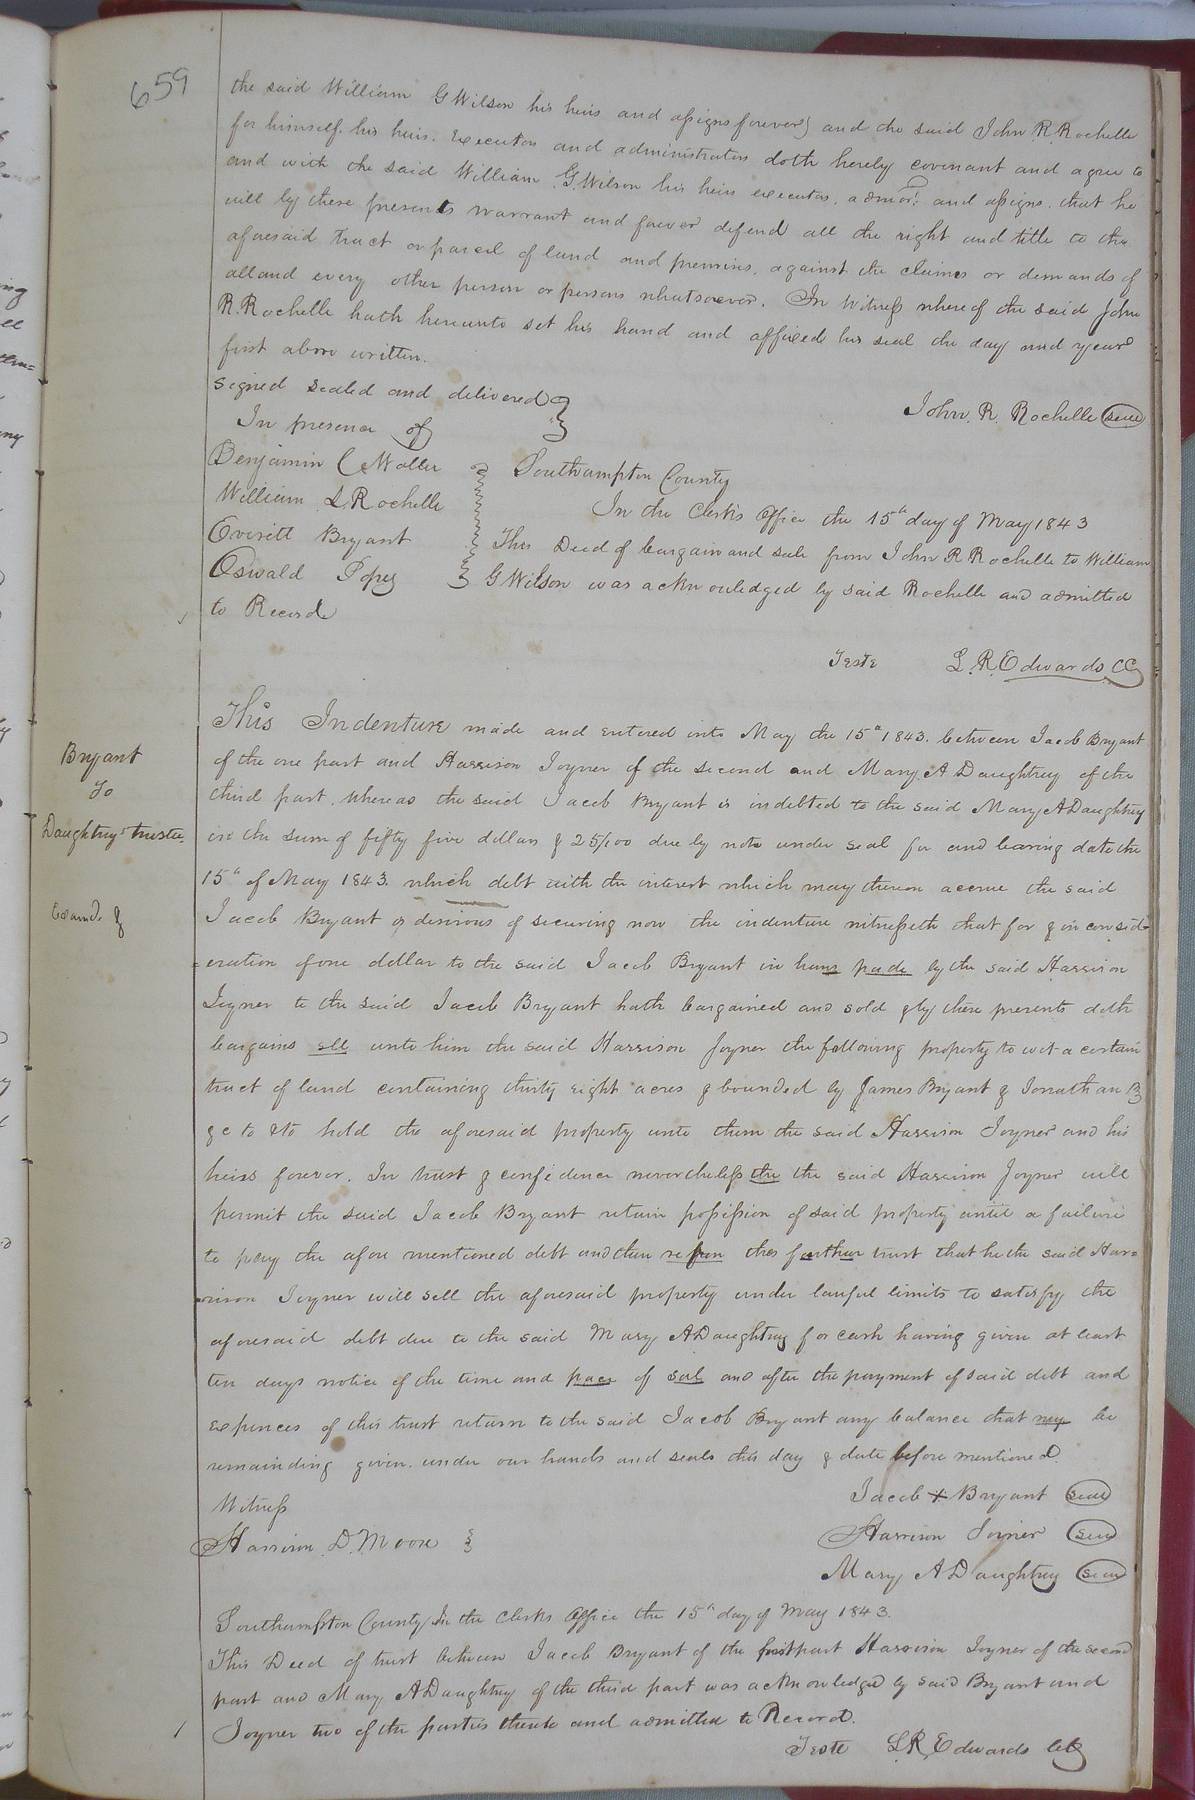 659
the said William G Wilson his heirs and assigns forever) and the said John R. Rochelle
for himself, his heirs. Executors and administrators doth hereby covenant and agree to
and with the said William G. Wilson his heirs executors, admors: and assigns, that he
will by these presents warrant and forever defend all the right and title to the
aforesaid tract or parcel of land and premises, against the claims or demands of
all and every other person or persons whatsoever. In Witness whereof the said John
R. Rochelle hath hereunto set his hand and affixed his seal the day and year
first above written.
signed sealed and delivered
In presence of
John. R. Rochelle seal
Benjamin C Waller
William L. Rochelle
Everitt Bryant
Oswald Pope
Southampton County
In the Clerk's Office the 15th day of May 1843
This Deed of bargain and sale from John R Rochelle to William
G Wilson was acknowledged by said Rochelle and admitted
to Record
Teste L. R. Edwards CC
Bryant
To
Daughtry's trustee
Examd. &
This Indenture made and entered into May the 15th 1843. between Jacob Bryant
of the one part and Harrison Joyner of the second and Mary A Daughtry of the
third part. Whereas the said Jacob Bryant is indebted to the said Mary A Daughtry
in the sum of fifty five dollars & 25/100 due by note under seal for and bearing date the
15th of May 1843. which debt with the interest which may thereon accrue the said
Jacob Bryant is desirous of securing now the indenture witnesseth that for & in consid-
=eration of one dollar to the said Jacob Bryant in hans pade by the said Harrison
Joyner to the said Jacob Bryant hath bargained and sold & by these presents doth
bargains sell unto him the said Harrison Joyner the following property to wit a certain
tract of land containing thirty eight acres & bounded by James Bryant & Jonathan B
&c to & to hold the aforesaid property unto them the said Harrison Joyner and his
heirs forever. In trust & confidence nevertheless the the said Harrison Joyner will
permit the said Jacob Bryant return possission of said property until a failure
to pay the afore mentioned debt and then this further trust that he the said Har=
=rison Joyner will sell the aforesaid property under lawful limits to satisfy the
aforesaid debt due to the said Mary A Daughtry for cash having given at least
ten days notice of the time and pace of sal and after the payment of said debt and
expences of this trust return to the said Jacob Bryant any balance that may be
remainding given under our hands and seals this day & date before mentioned.
Witness
Harrison D. Moore
Jacob + Bryant seal
Harrison Joyner seal
Mary A Daughtry seal
Southampton County In the Clerks Office the 15th day of May 1843.
This Deed of trust between Jacob Bryant of the first part Harrison Joyner of the second
part and Mary A Daughtry of the third part was acknowledged by said Bryant and
Joyner two of the parties thereto and admitted to Record.
Teste L R. Edwards clk